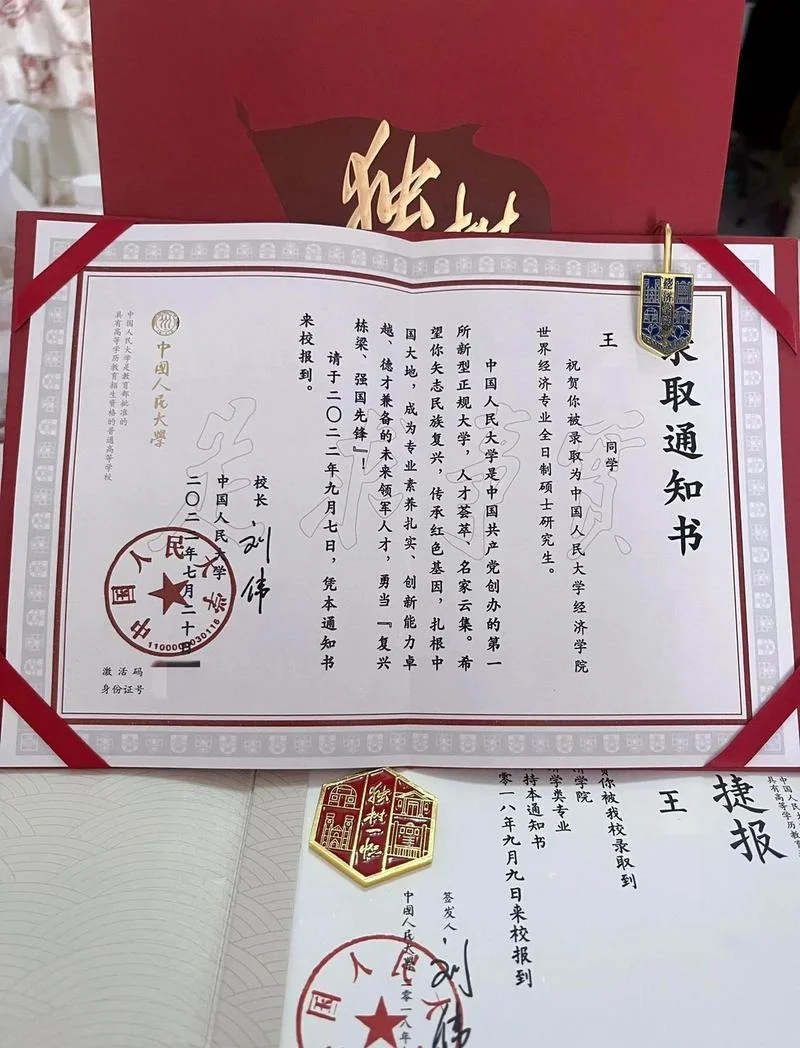 独树
录取通知书
王
同学
祝贺你被录取为中国人民大学经济学院
世界经济专业全日制硕士研究生。
中国人民大学是中国共产党创办的第一
所新型正规大学，人才荟萃、名家云集。希
望你矢志民族复兴，传承红色基因，扎根中
国大地，成为专业素养扎实、创新能力卓
越、德才兼备的未来领军人才，勇当『复兴
栋梁、强国先锋』！
请于二〇二二年九月七日，凭本通知书
来校报到。
校长 刘伟
中国人民大学
二〇二一年七月二十日
中国人民大学
中国人民大学是教育部批准的
具有高等学历教育招生资格的普通高等学校
实事求是
中国人民大学
1100000030116
激活码
身份证号
捷报
中国人民大
具有高等学历教
王
你被我校录取到
济学院
济学类专业
持本通知书
〇一八年九月九日来校报到
签发人 刘伟
中国人民大学
二〇一八年
独树一帜
国人大